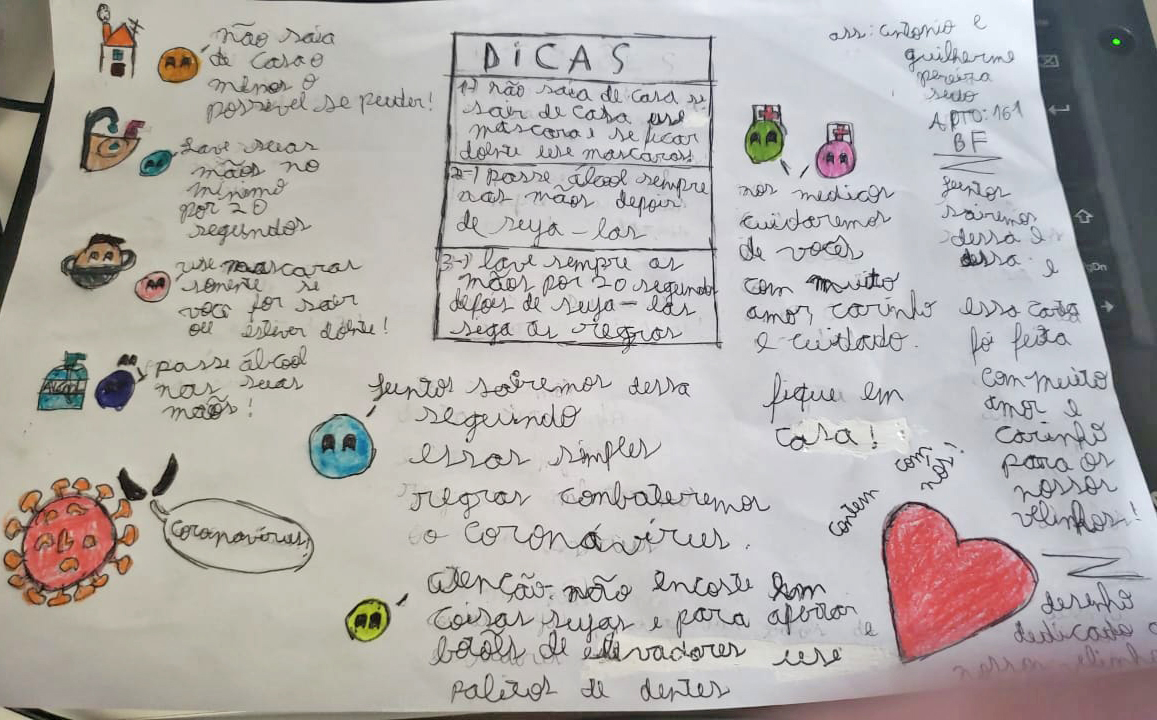 não saia
de casa o
minimo
possivel se puder!
lave suas
mãos no
minimo
por 20
segundos
use mascaras
somente se
você for sair
ou estiver doente!
passe álcool
nas suas
mãos!
ALCOOL
Coronavírus
DICAS
1-) não saia de casa se
sair de casa use
mascara e se ficar
doente use mascaras!
2-) passe álcool sempre
nas mãos depois
de suja-las.
3-) lave sempre as
mãos por 20 segundos
depois de suja-las
siga as regras
juntos sairemos dessa
seguindo
essas simples
regras combateremos
o coronavírus.
atenção: não encoste em
coisas sujas e para apertar
botões de elevadores use
palitos de dentes
nos medicos
cuidaremos
de vocês
com muito
amor, carinho
e cuidado.
fique em
casa!
contem
com
nós!
ass: antonio e
guilherme
pereira
APTO: 161
BF
juntos
sairemos
dessa e
dessa e
essa carta
foi feita
com muito
amor e
carinho
para os
nossos
velinhos!
desenho
dedicado a
nossos